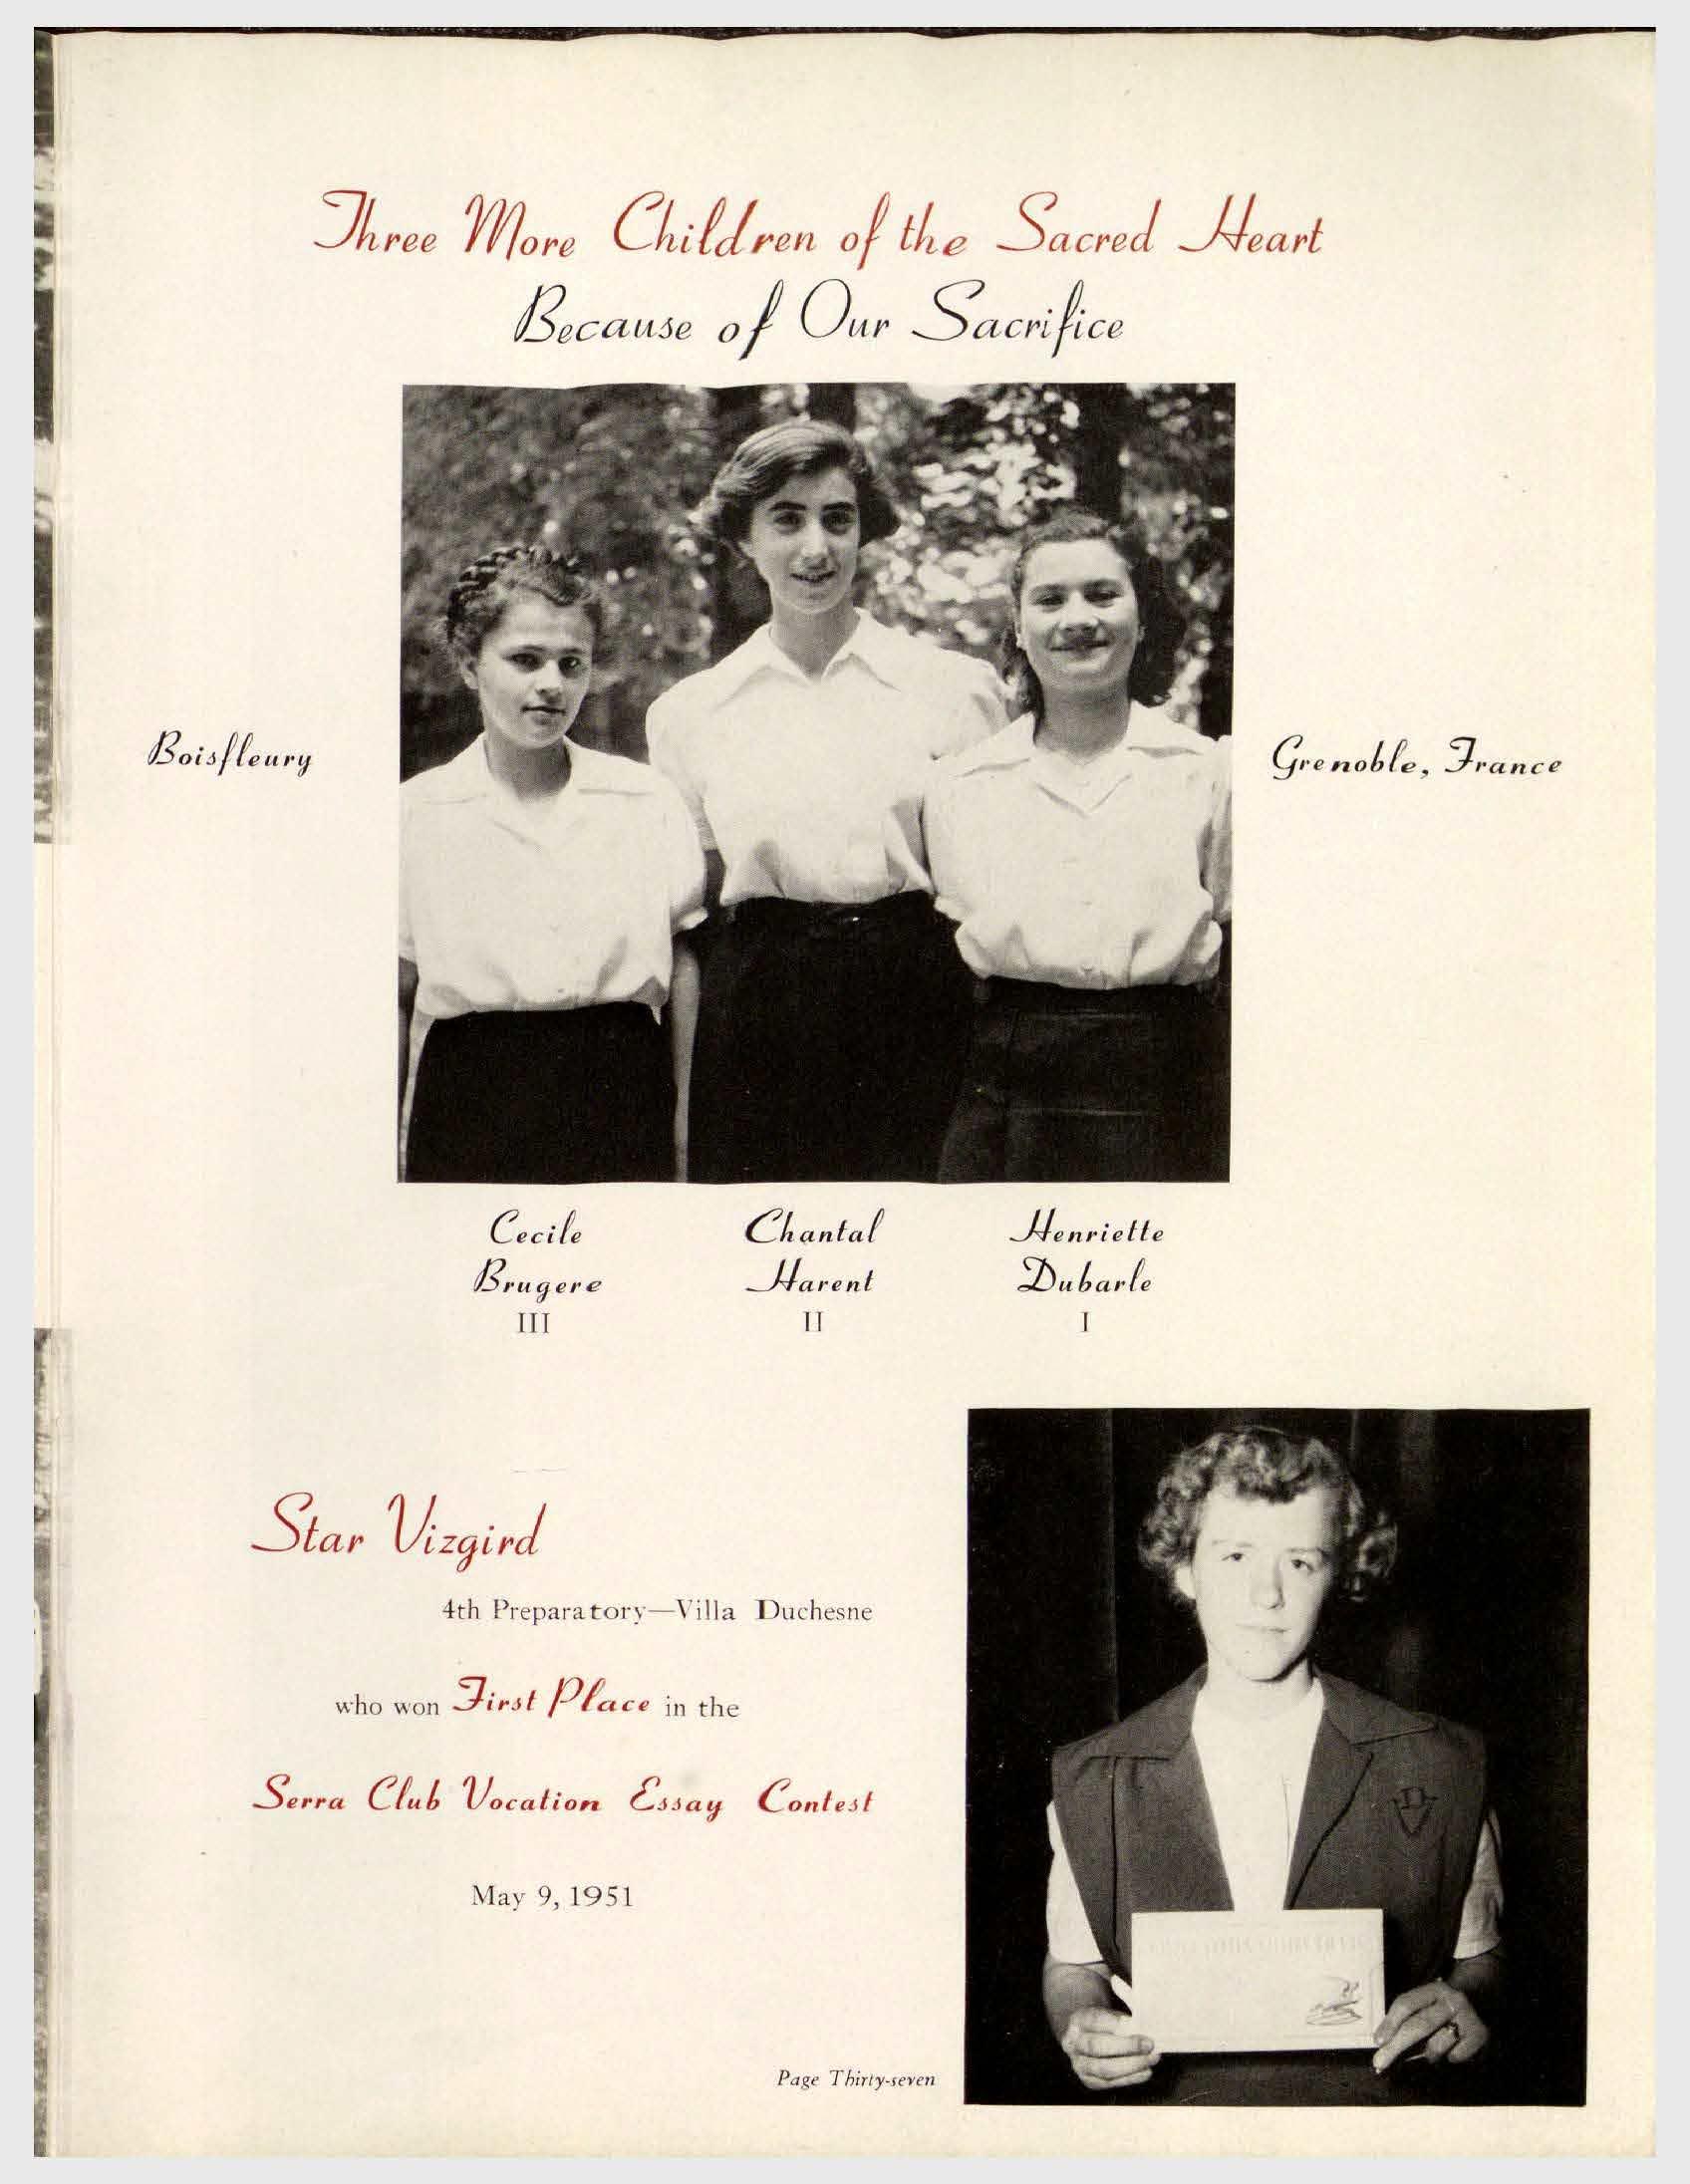 Three More Children of the Sacred Heart
Because of Our Sacrifice
Boisfleury
Grenoble, France
Cecile Brugere III
Chantal Harent II
Henriette Dubarle I
Star Vizgird
4th Preparatory—Villa Duchesne
who won First Place in the
Serra Club Vocation Essay Contest
May 9, 1951
Page Thirty-seven